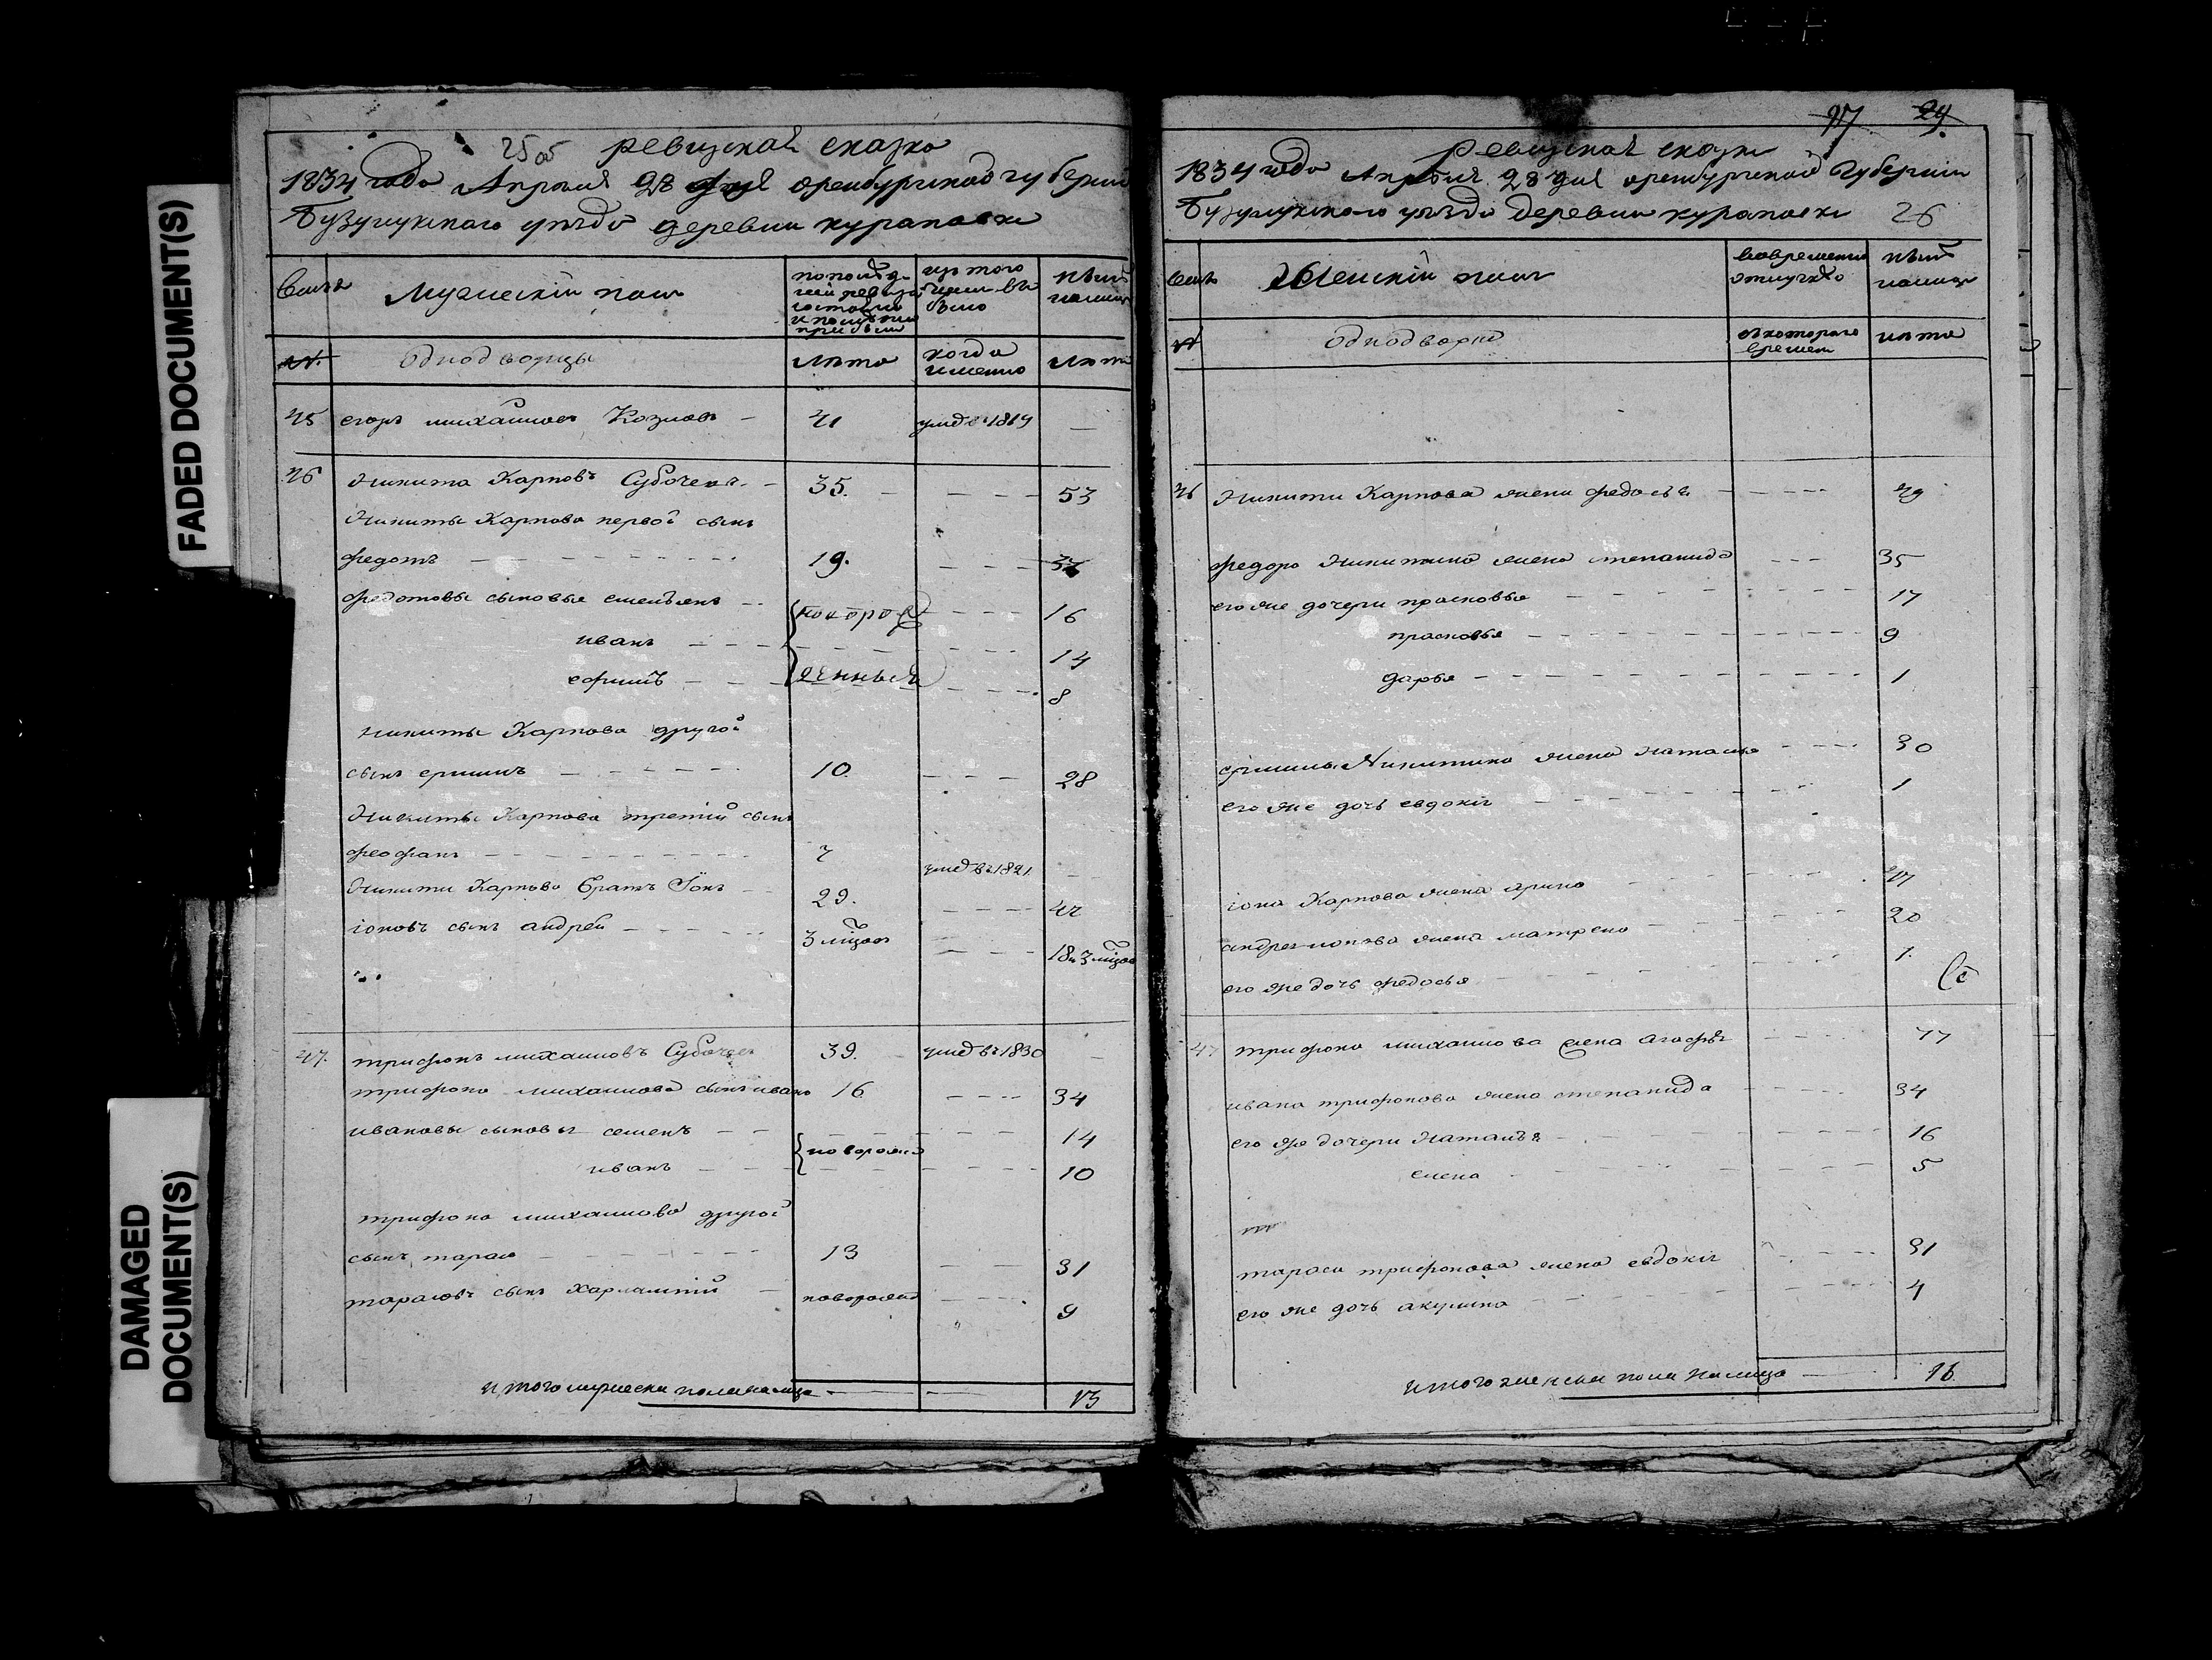 FADED DOCUMENT(S)
DAMAGED DOCUMENT(S)
25 об
ревизская сказка
1834 года Апреля 28 дня оренбургской губернии
Бузулукского уезда деревни курапаски
Семьи
Мужеский полъ
по последней ревизии состояло и после тово прибыло
из того числа выбыло
ныне налицо
№.
однодворцы
лета
когда именно
лета
45 егоръ михаиловъ Козловъ - 41 умерв 1819 —
46 Никита Карповъ Субочевъ - 35. - - - - 53
Никиты Карпова первой сынъ
федотъ - - - - 19. - - - 37
федотовы сыновья емельянъ - - новорож - - - 16
иванъ - - - - - - 14
ефимъ - - денныя - - - 8
никиты Карпова другой
сынъ еримъ - - - - 10. - - - 28
Никиты Карпова третий сынъ
феофанъ - - - - 7 умер въ 1821. - -
Никиты Карпова братъ Iонъ - - 29. - - - 47
iоновъ сынъ андрей - - - - 3 мцов - - - 18 и 3 мцов
47. трифонъ михаиловъ Субочев 39. умер въ 1830 -
трифона михаилова сынъ иванъ 16 - - - 34
ивановы сыновья семенъ - - новорожд - - - 14
иванъ - - - - - 10
трифона михаилова другой
сынъ тарас - - - - 13 - - 31
тарасовъ сынъ харлампий - новорожд - - - 9
итого мужеска пола налицо - - 13
97 29
ревизская сказка
1834 года Апреля 28 дня оренбургской Губернии
Бузулукского уезда деревни курапаски 26
Семьи
Женский полъ
во временной отлучке
ныне налицо
№
однодворки
с которого времени
лета
46 Никиты Карпова жена федосья - - - 49
федора Никитина жена степанида - - - 35
его же дочери прасковья - - - 17
прасковья - - - 9
дарья - - - 1
Никитина жена наталья - - - 30
его же дочь евдокия - - - 1
iона Карпова жена арина - - - 47
андрея ионова жена матрена - - - 20
его же дочь федосья - - - 1.
47 трифона михаилова жена агафья - - - 77
ивана трифонова жена степанида - - - 34
его же дочери наталья - - - 16
елена - - - 5
тараса трифонова жена евдокия - - - 31
его же дочь акулина - - - 4
итого женска пола налицо - 16.